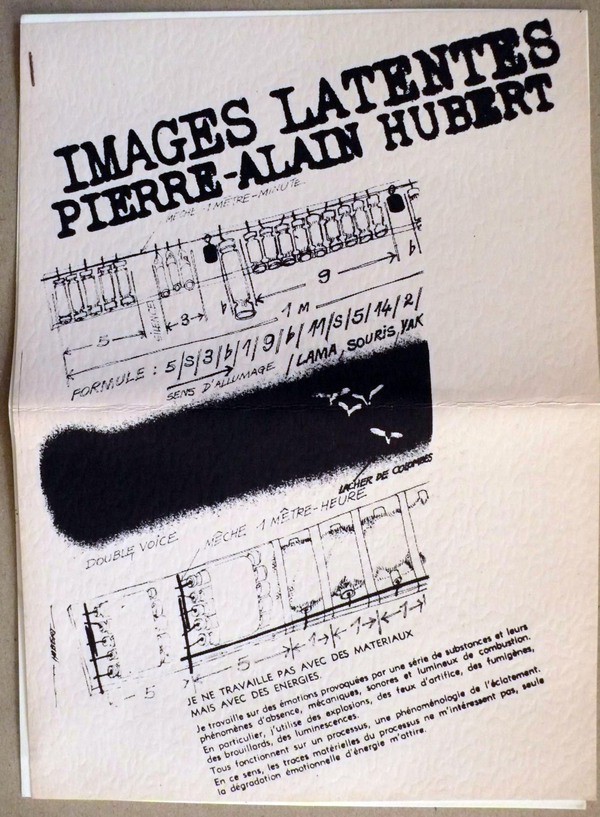 IMAGES LATENTES
PIERRE-ALAIN HUBERT
MÈCHE 1 MÈTRE-MINUTE
5
3
b
9
b
1 M
FORMULE : 5/S/3/b/1/9/b/11/S/5/14/2/
SENS D'ALLUMAGE / LAMA, SOURIS, YAK
LACHER DE COLOMBES
DOUBLE VOICE
MÈCHE 1 MÈTRE-HEURE
5
5
1
1
1
JE NE TRAVAILLE PAS AVEC DES MATERIAUX
MAIS AVEC DES ENERGIES.
Je travaille sur des émotions provoquées par une série de substances et leurs
phénomènes d'absence, mécaniques, sonores et lumineux de combustion.
En particulier, j'utilise des explosions, des feux d'artifice, des fumigènes,
des brouillards, des luminescences.
Tous fonctionnent sur un processus, une phénoménologie de l'éclatement.
En ce sens, les traces matérielles du processus ne m'intéressent pas, seule
la dégradation émotionnelle d'énergie m'attire.